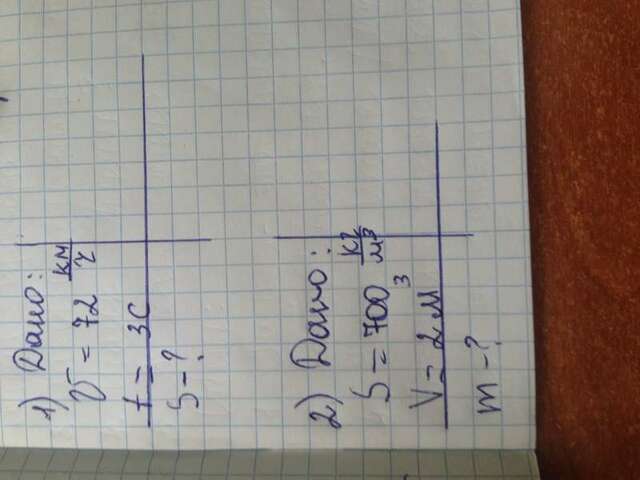 1) Дано:
υ = 72 км/ч
t = 3 с
S - ?
2) Дано:
S = 700 кг/м³
V = 2 м³
m - ?